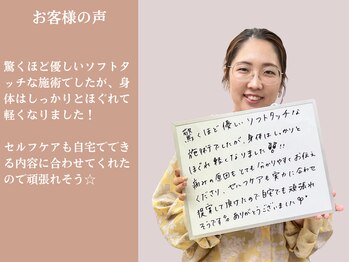 お客様の声
驚くほど優しいソフトタ
ッチな施術でしたが、身
体はしっかりとほぐれて
軽くなりました！
セルフケアも自宅ででき
る内容に合わせてくれた
ので頑張れそう☆
驚くほど優しいソフトタッチな
施術でしたが、身体はしっかりと
ほぐれ軽くなりました!!
痛みの原因もとても分かりやすくお伝え
くださり、セルフケアも実力に合わせ
提案して頂けたので自宅でも頑張れ
そうです。ありがとうございました